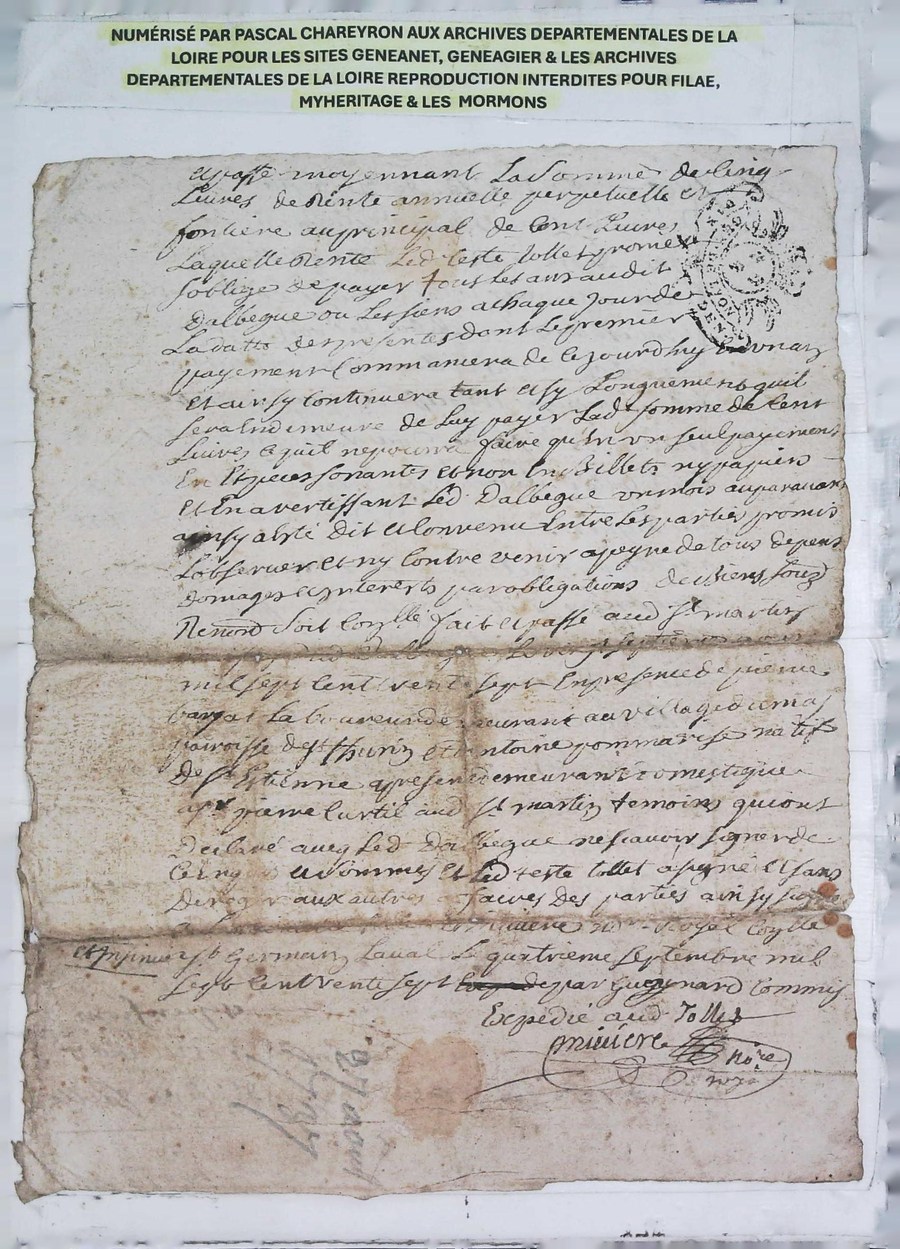 NUMÉRISÉ PAR PASCAL CHAREYRON AUX ARCHIVES DEPARTEMENTALES DE LA
LOIRE POUR LES SITES GENEANET, GENEAGIER & LES ARCHIVES
DEPARTEMENTALES DE LA LOIRE REPRODUCTION INTERDITES POUR FILAE,
MYHERITAGE & LES MORMONS
moyennant La Somme de Cinq
Livres de Rente annuelle perpetuelle et
fonciere au principal de Cent Livres
Laquelle Rente Led
soblige de payer tous les ans audit
Dalbegue ou Les siens a chaque Jour de
La datte des presentes dont Le premier
payement Commancera de ce jourdhuy En un an
Et ainsy continuera tant et sy Longuement quil
sera En demeure de Luy payer Lad somme de Cent
Livres Ce quil ne pourra faire qu'En un seul payement
En Especes sonantes Et non En Billets ny papiers
Et En avertissant Led Dalbegue un mois auparavant
ainsy a Esté Dit et Convenu Entre Les parties promis
Lobserver Et ny Contre venir a peyne de tous depens
Domages et interests par obligations de Biens Souz
Renond Soit Scellé fait et passé aud St martin
mil sept Cent vent sept En presence de pierre
Laboureur demeurant au village
paroisse de St thurin Et antoine pommarese natif
De St Estienne a present demeurant Domestique
pierre Curtil aud St martin temoins qui ont
Declaré avec Led Dalbegue ne scavoir signer de
Ce Enquis et Sommés Et Led teste tollet a signé Et sans
Deroger aux autres affaires des parties ainsy signé
Royal
Et Insinué a St Germain Laval Le quatrieme septembre mil
sept Cent vent sept par Guignard Commis
Expedié aud Tollet
miviere
no.re
27 aout
1727